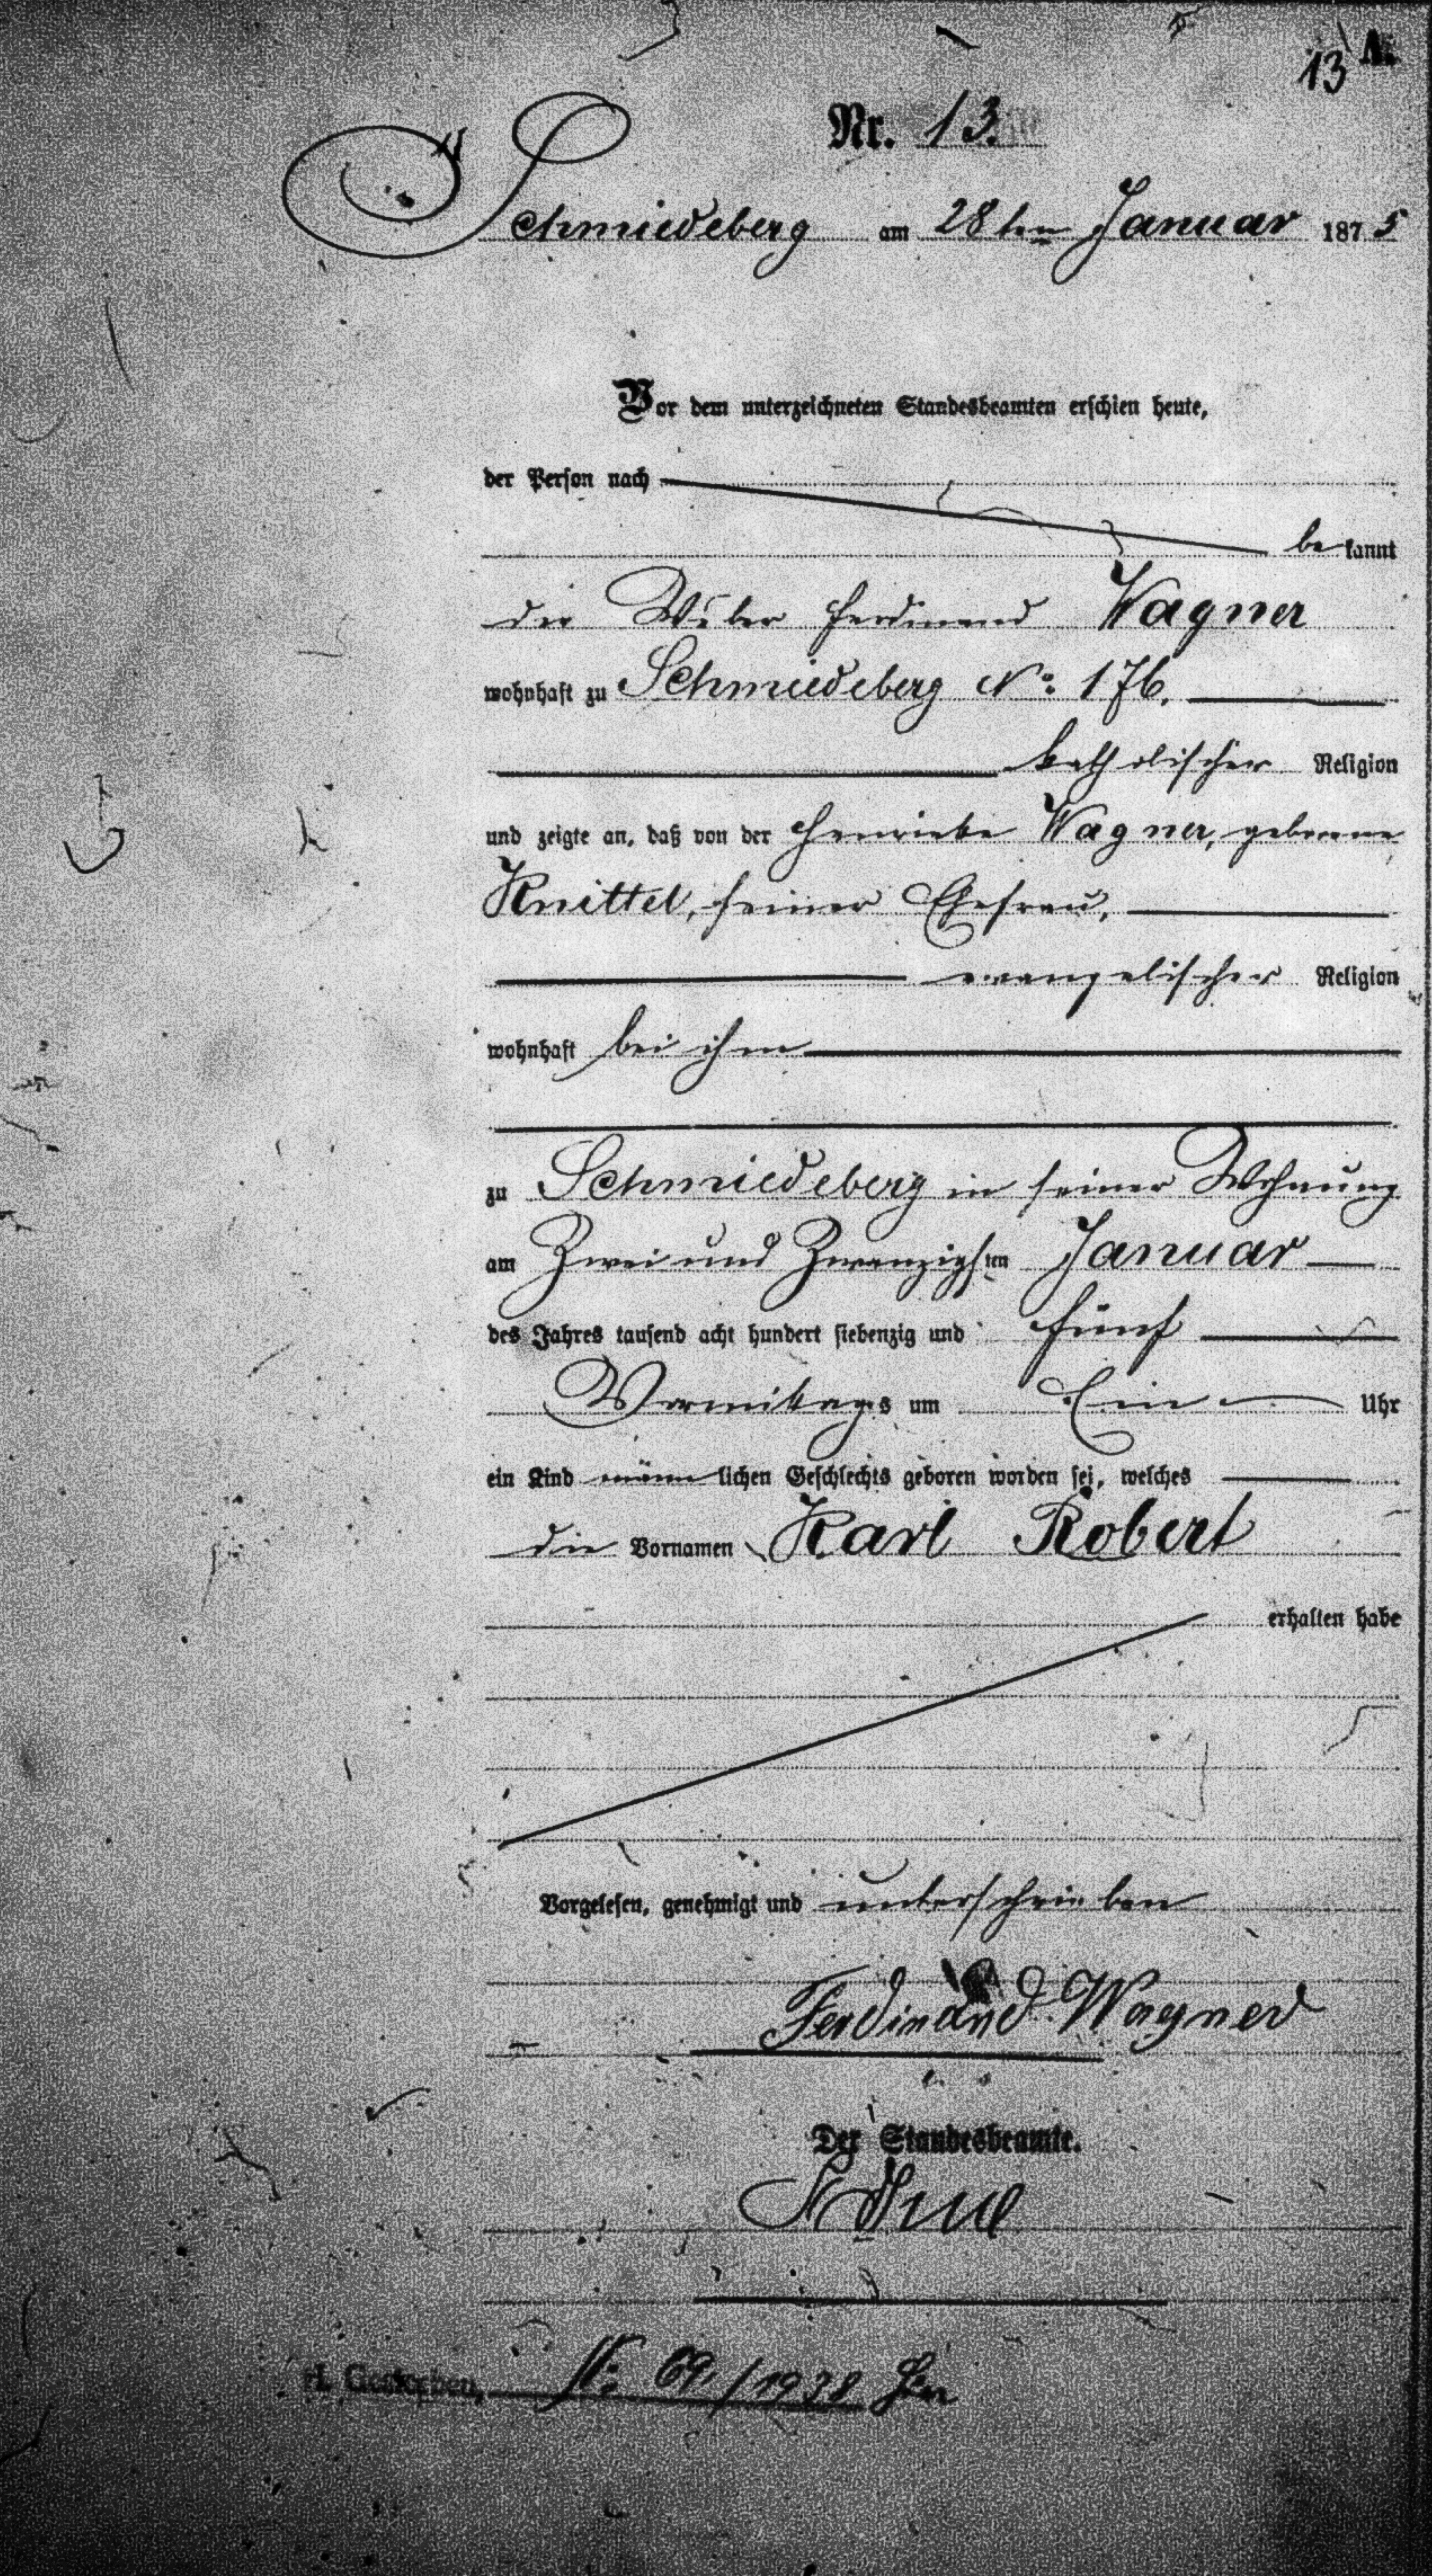 13 A.
Nr. 13.
Schmiedeberg am 28ten Januar 1875
Vor dem unterzeichneten Standesbeamten erschien heute,
der Person nach
bekannt
der Weber Ferdinand Wagner
wohnhaft zu Schmiedeberg No. 176.
katholischer Religion
und zeigte an, daß von der Henriete Wagner, geborene
Knittel, seiner Ehefrau,
evangelischer Religion
wohnhaft bei ihm
zu Schmiedeberg in seiner Wohnung
am Zwei und Zwanzigsten Januar
des Jahres tausend acht hundert siebenzig und fünf
Vormittags um Ein Uhr
ein Kind männlichen Geschlechts geboren worden sei, welches
die Vornamen Karl Robert
erhalten habe
Vorgelesen, genehmigt und unterschrieben
Ferdinand Wagner
Der Standesbeamte.
Gestorben, No. 69/1938